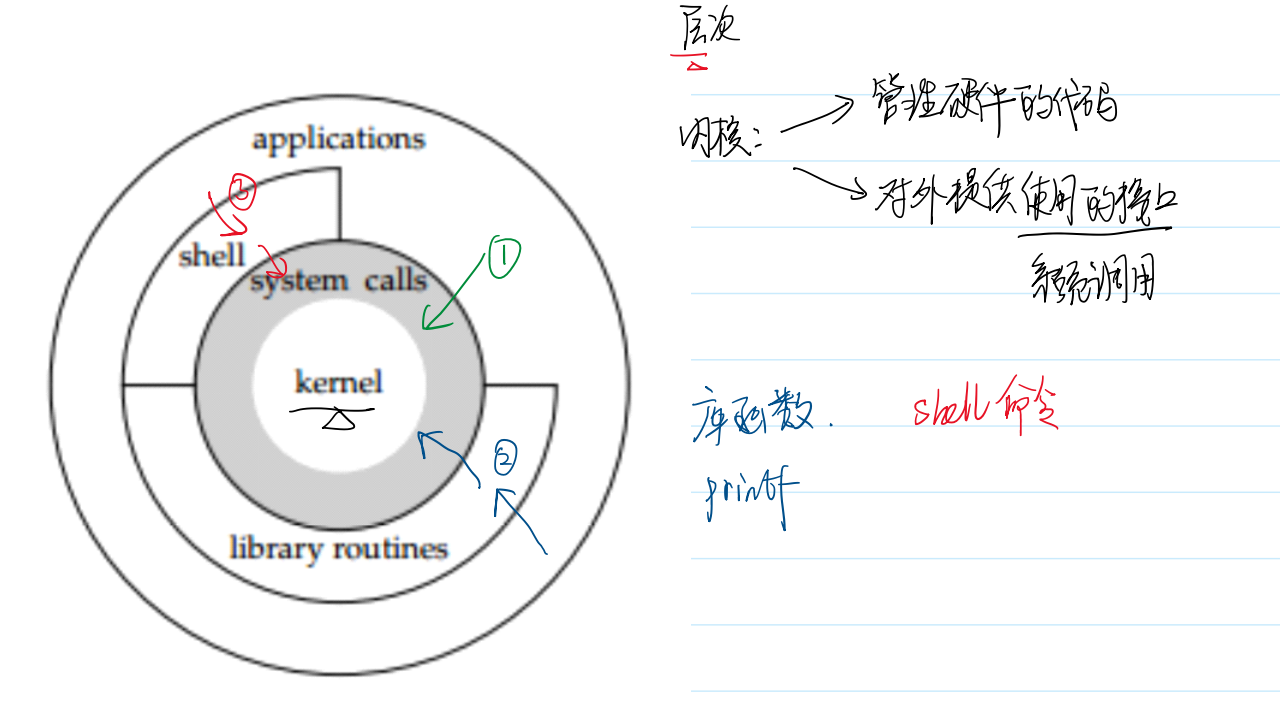 applications
③
shell
system calls
①
kernel
②
library routines
层次
内核：
管理硬件的代码
对外提供使用的接口
系统调用
库函数.
shell 命令
printf